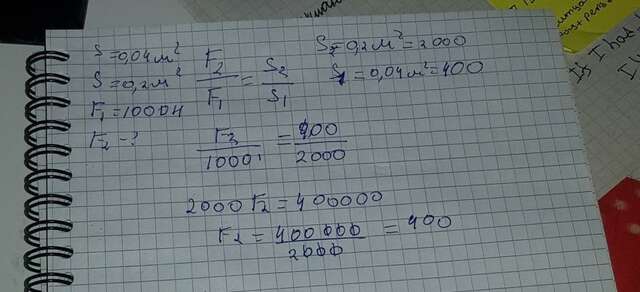 S = 0,04 м²
S = 0,2 м²
F₁ = 1000 Н
F₂ - ?
F₂/F₁ = S₂/S₁
S₂ = 0,2 м² = 2000
S₁ = 0,04 м² = 400
F₂/1000 = 400/2000
2000 F₂ = 400000
F₂ = 400 000/2000 = 400
If I had